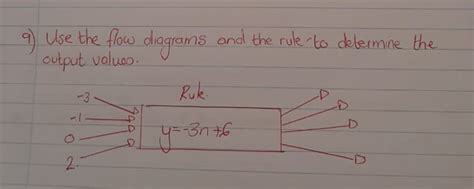 9) Use the flow diagrams and the rule to determine the
output values.
Rule
-3
-1
0
2
y=-3n+6